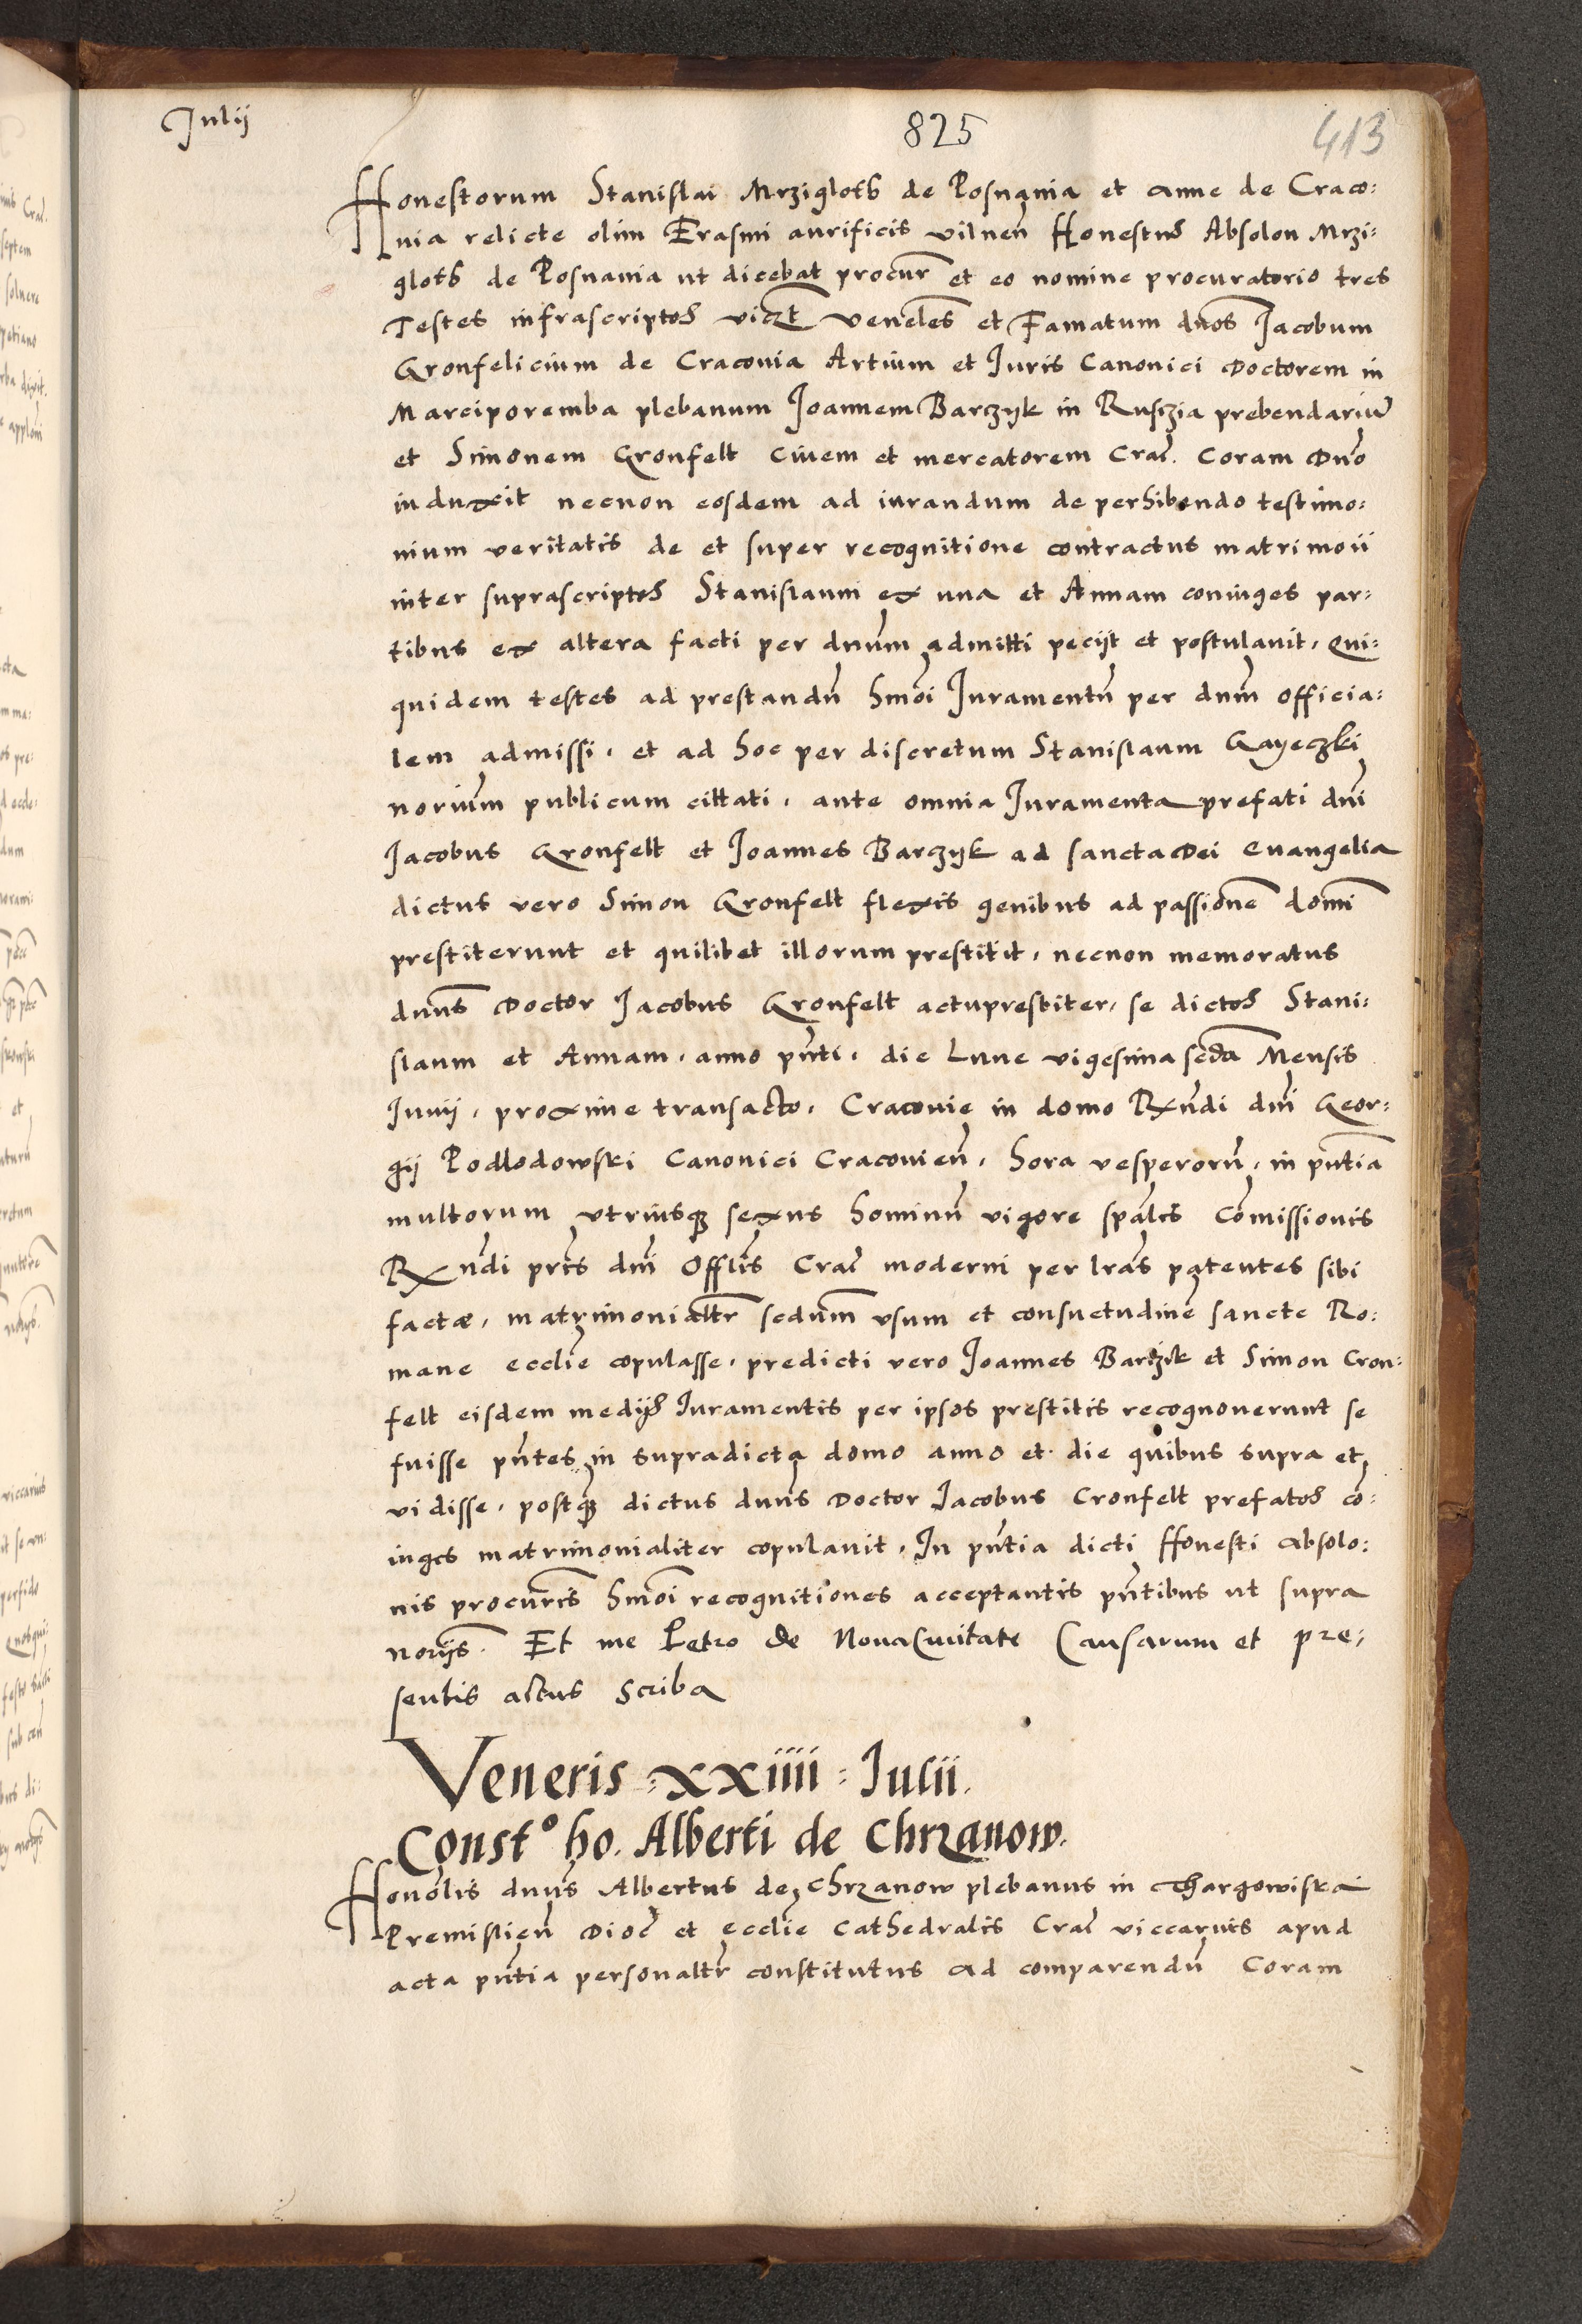 Julij
825
413
Honestorum Stanislai Mrziglotħ de Posnania et Anne de Craco:
uia relicte olim Erasmi aurificis vilneñ Honestus Absolon Mrzi:
glotħ de Posnania ut dicebat procur̃ et eo nomine procuratorio tres
Testes infrascriptos vicꝫt venebles et Famatum dnos Jacobum
Gronfelicium de Craconia Artium et Juris Canonici Doctorem in
Marciporemba plebanum Joannem Barczijk in Rusczia prebendariũ
et Simonem Gronfelt Ciuem et mercatorem Crac̃. Coram Dno
induxit necnon eosdem ad iurandum de perhibendo testimo:
nium veritatis de et super recognitione contractus matrimoii
inter suprascriptos Stanislaum ex una et Annam coniuges par:
tibus ex altera facti per dnum admitti pecijt et postulauit, Qui:
quidem testes ad prestandũ hmõi Juramentũ per dnm̃ officia:
lem admissi, et ad hoc per discretum Stanislaum Gayeczki
norium̃ publicum cittati, ante omnia Juramenta prefati dni
Jacobus Gronfelt et Joannes Barczijk ad sancta Dei Euangelia
dictus vero Simon Gronfelt flexis genibus ad passionẽ domi
prestiterunt et quilibet illorum prestitit, necnon memoratus
dnus Doctor Jacobus Gronfelt actuprestiter, se dictos Stani:
slaum et Annam, anno pñti, die Lune vigesima secda Mensis
Junij, proxime transacto, Craconie in domo Rxndi dni Geor:
gij Podlodowski Canonici Craconieñ, hora vesperorũ, in pñtia
multorum vtriusqꝫ sexus hominũ vigore spãlis Comissionis
Rxndi pris dni Offlis Crac̃ moderni per lras patentes sibi
factæ, matrimonialtr̃ secdum̃ vsum et consuetudinẽ sancte Ro:
mane ecclie copulasse, predicti vero Joannes Barczik et Simon Cron:
felt eisdem medijs Juramentis per ipsos prestitis recognouerunt se
fuisse pñtes in supradicta domo anno et die quibus supra et
vidisse, postqꝫ dictus dnus Doctor Jacobus Cronfelt prefatos co:
iuges matrimonialiter copulauit, In pñtia dicti Honesti Absolo:
nis procuris hmõi recognitiones acceptantis pñtibus ut supra
norijs. Et me Petro de Nouaciuitate Causarum et pre:
sentis actus scriba
Veneris xxiiii Julii.
Const° ho. Alberti de Chrzanow.
Honolis dnus Albertus de Chrzanow plebanus in Thargowiska
Premislieñ Dioc̃ et Ecclie Cathedralis Crac̃ viccarius apud
acta pñtia personaltr̃ constitutus ad comparendũ Coram